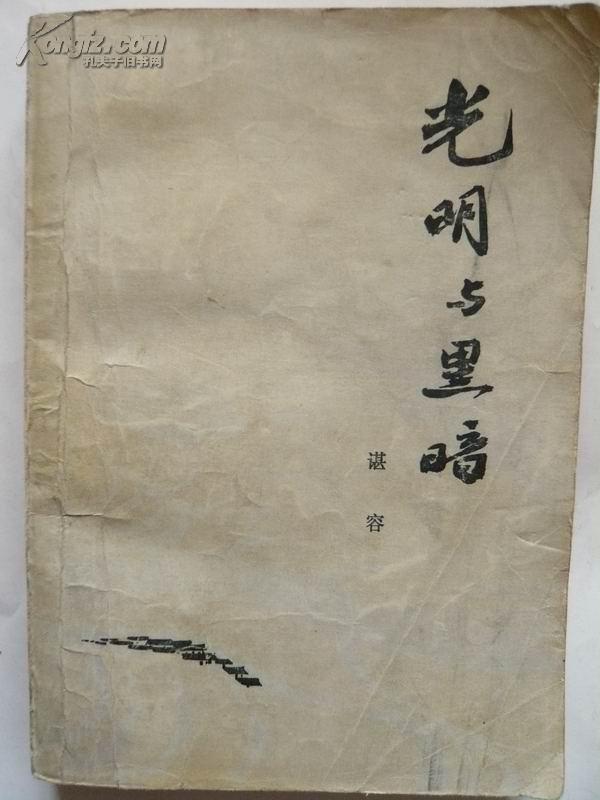 Kongfz.com
孔夫子旧书网
光明与黑暗
谌容